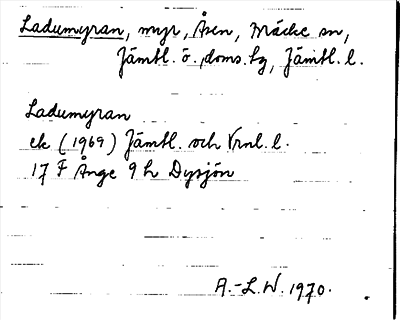 Ladumyran, myr, Åsen, Bräcke sn,
Jämtl. ö. doms. tg, Jämtl. l.
Ladumyran
ek (1969) Jämtl. och Vrnl. l.
17 F Ånge 9 h Dysjön
A.-L.W. 1970.